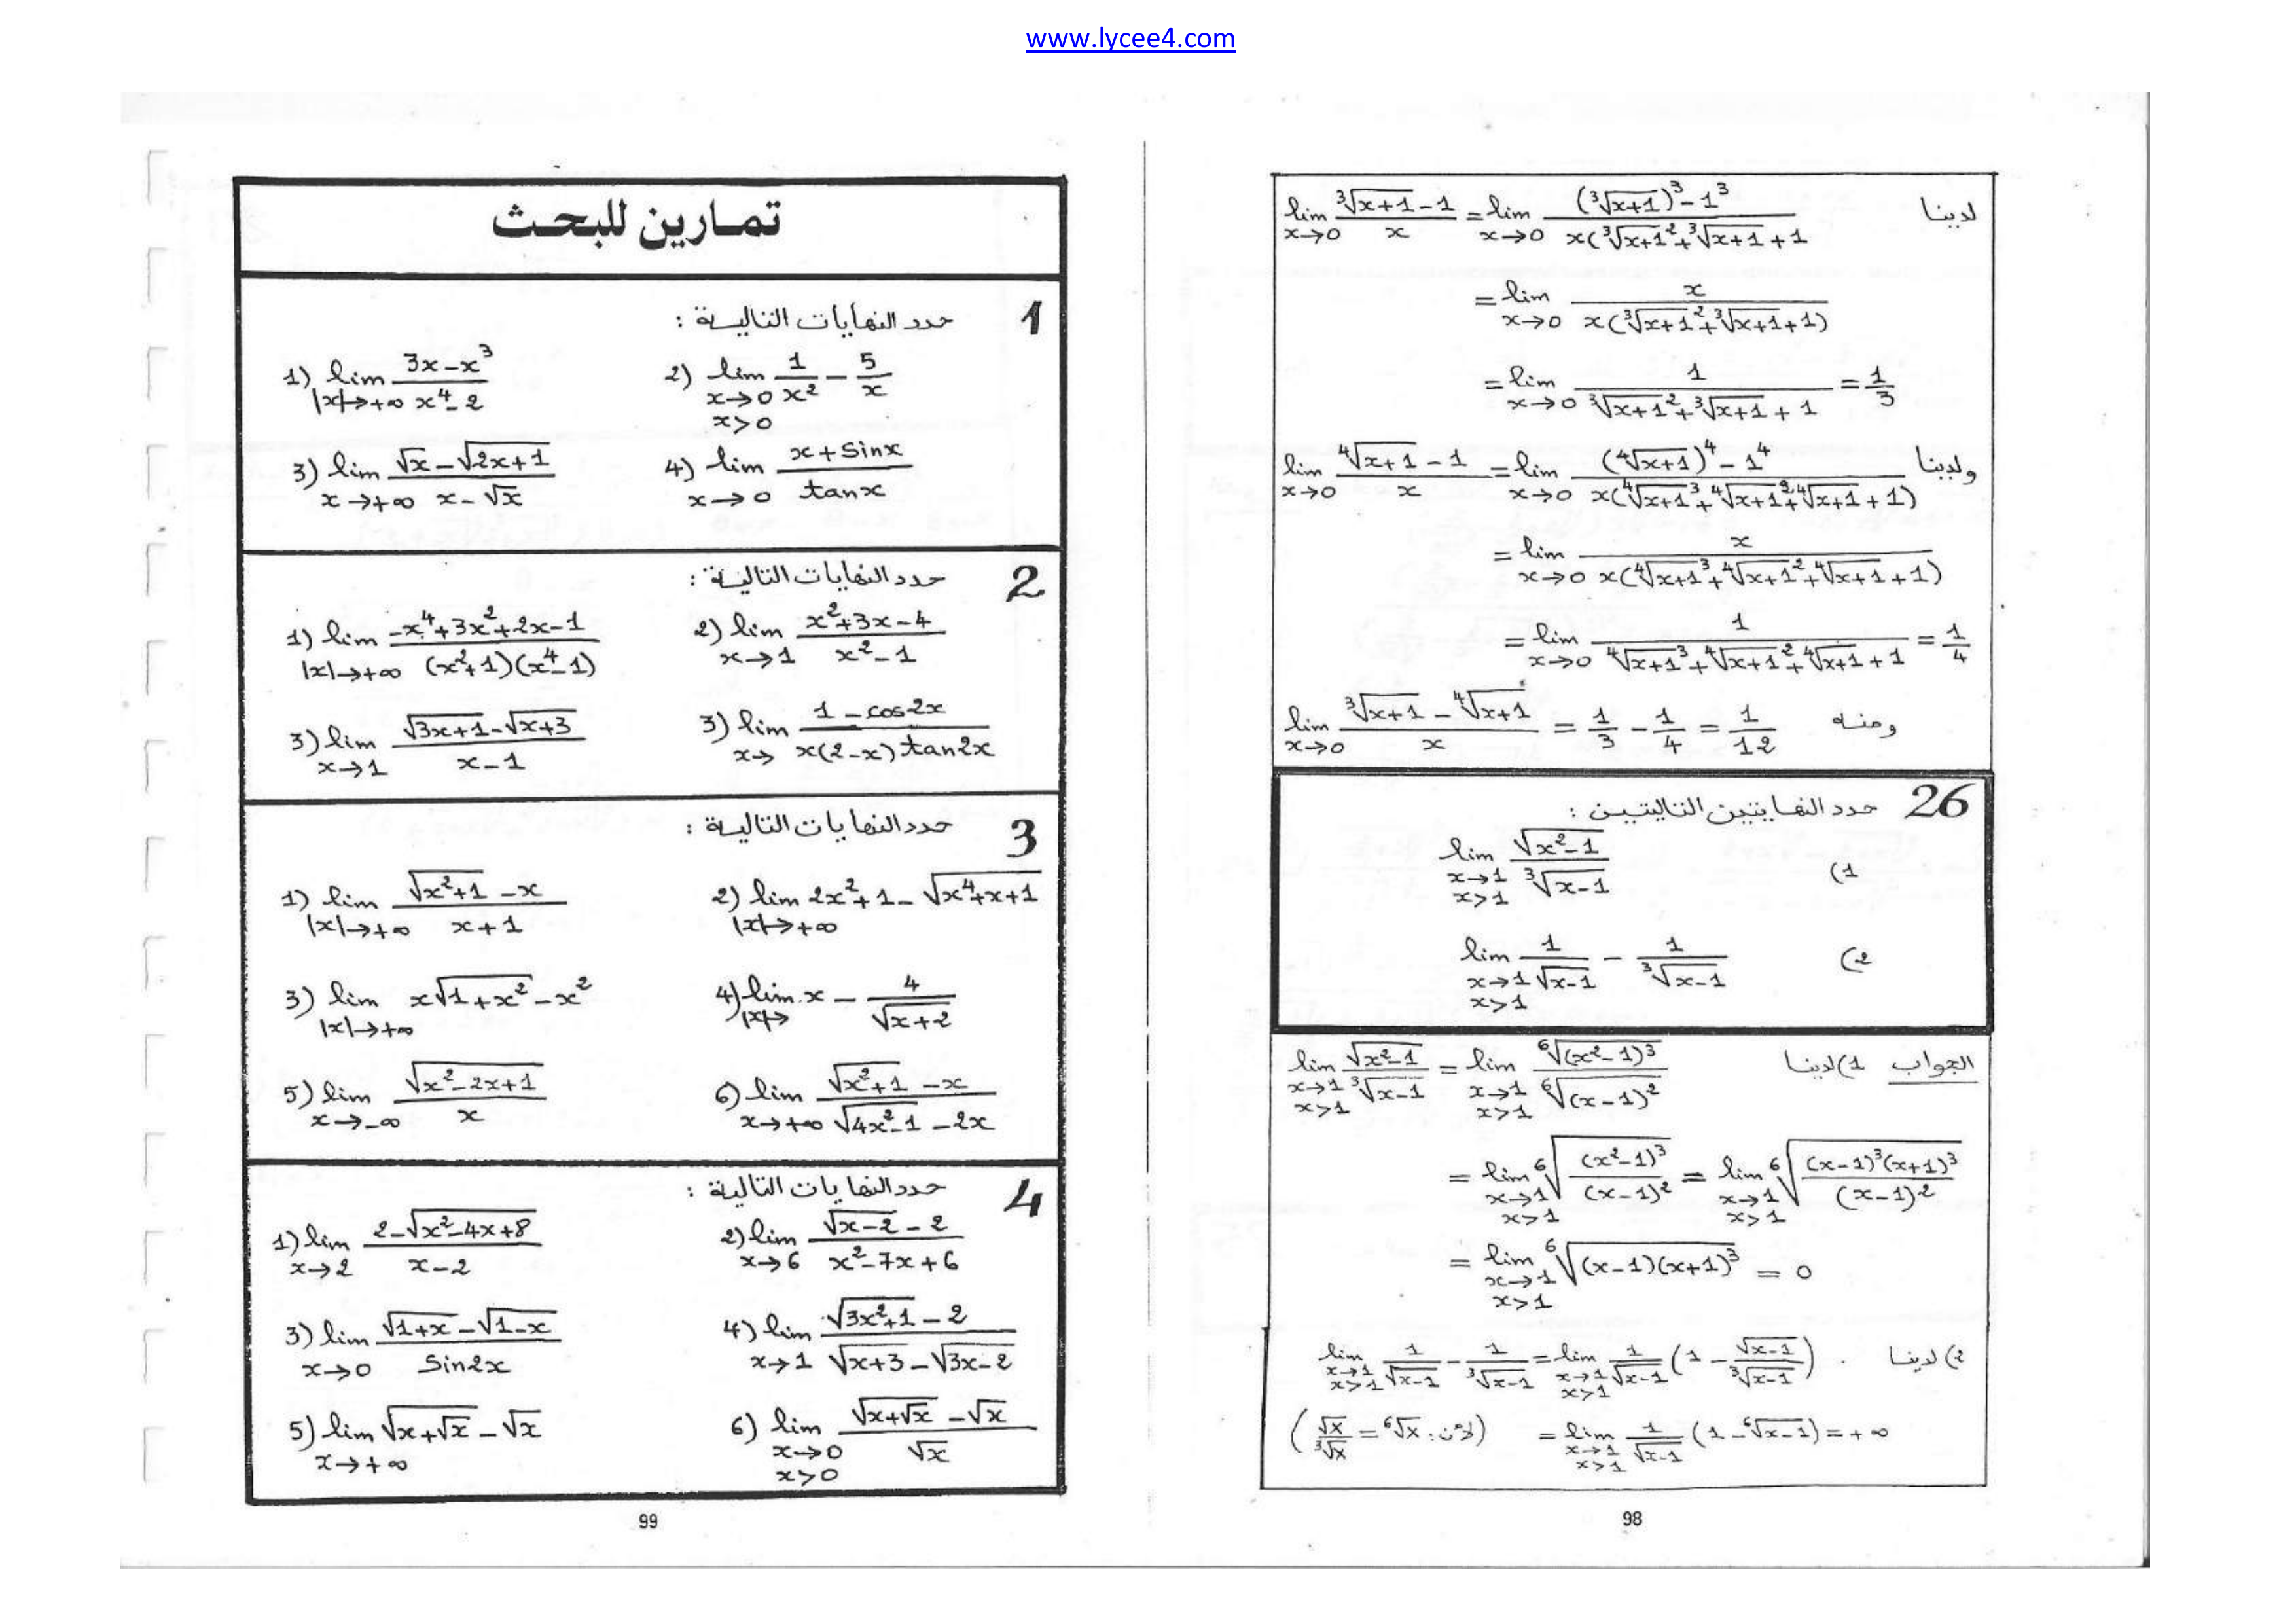 www.lycee4.com
لدينا lim_{x→0} (∛(x+1) - 1)/x = lim_{x→0} ((∛(x+1))³ - 1³)/(x(∛(x+1)² + ∛(x+1) + 1
= lim_{x→0} x/(x(∛(x+1)² + ∛(x+1) + 1))
= lim_{x→0} 1/(∛(x+1)² + ∛(x+1) + 1) = 1/3
ولدينا lim_{x→0} (∜(x+1) - 1)/x = lim_{x→0} ((∜(x+1))⁴ - 1⁴)/(x(∜(x+1)³ + ∜(x+1)² + ∜(x+1) + 1))
= lim_{x→0} x/(x(∜(x+1)³ + ∜(x+1)² + ∜(x+1) + 1))
= lim_{x→0} 1/(∜(x+1)³ + ∜(x+1)² + ∜(x+1) + 1) = 1/4
ومنه lim_{x→0} (∛(x+1) - ∜(x+1))/x = 1/3 - 1/4 = 1/12
26 حدد النهايتين التاليتين :
1) lim_{x→1, x>1} √(x²-1)/∛(x-1)
2) lim_{x→1, x>1} 1/√(x-1) - 1/∛(x-1)
الجواب 1) لدينا lim_{x→1, x>1} √(x²-1)/∛(x-1) = lim_{x→1, x>1} ⁶√((x²-1)³)/⁶√((x-1)²)
= lim_{x→1, x>1} ⁶√((x²-1)³/(x-1)²) = lim_{x→1, x>1} ⁶√((x-1)³(x+1)³/(x-1)²)
= lim_{x→1, x>1} ⁶√((x-1)(x+1)³) = 0
2) لدينا lim_{x→1, x>1} 1/√(x-1) - 1/∛(x-1) = lim_{x→1, x>1} 1/√(x-1) (1 - √(x-1)/∛(x-1))
= lim_{x→1, x>1} 1/√(x-1) (1 - ⁶√(x-1)) = +∞ (لأن: √x/∛x = ⁶√x)
98
تمارين للبحث
1 حدد النهايات التالية :
1) lim_{|x|→+∞} (3x - x³)/(x⁴ - 2) 2) lim_{x→0, x>0} 1/x² - 5/x
3) lim_{x→+∞} (√x - √(2x+1))/(x - √x) 4) lim_{x→0} (x + sinx)/tanx
2 حدد النهايات التالية :
1) lim_{|x|→+∞} (-x⁴ + 3x² + 2x - 1)/((x²+1)(x⁴-1)) 2) lim_{x→1} (x² + 3x - 4)/(x² - 1)
3) lim_{x→1} (√(3x+1) - √(x+3))/(x-1) 3) lim_{x→} (1 - cos2x)/(x(2-x)tan2x)
3 حدد النهايات التالية :
1) lim_{|x|→+∞} (√(x²+1) - x)/(x+1) 2) lim_{|x|→+∞} 2x² + 1 - √(x⁴+x+1)
3) lim_{|x|→+∞} x√(1+x²) - x² 4) lim_{|x|→} x - 4/√(x+2)
5) lim_{x→-∞} √(x²-2x+1)/x 6) lim_{x→+∞} (√(x²+1) - x)/(√(4x²-1) - 2x)
4 حدد النهايات التالية :
1) lim_{x→2} (2 - √(x²-4x+8))/(x-2) 2) lim_{x→6} (√(x-2) - 2)/(x² - 7x + 6)
3) lim_{x→0} (√(1+x) - √(1-x))/sin2x 4) lim_{x→1} (√(3x²+1) - 2)/(√(x+3) - √(3x-2))
5) lim_{x→+∞} √(x+√x) - √x 6) lim_{x→0, x>0} (√(x+√x) - √x)/√x
99